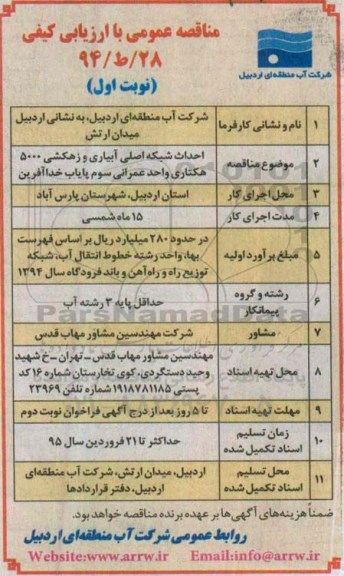 مناقصه عمومی با ارزیابی کیفی
۲۸/ط/۹۴
(نوبت اول)
شرکت آب منطقه‌ای اردبیل
۱ نام و نشانی کارفرما شرکت آب منطقه‌ای اردبیل، به نشانی اردبیل
میدان ارتش
۲ موضوع مناقصه احداث شبکه اصلی آبیاری و زهکشی ۵۰۰۰
هکتاری واحد عمرانی سوم پایاب خداآفرین
۳ محل اجرای کار استان اردبیل، شهرستان پارس آباد
۴ مدت اجرای کار ۱۵ ماه شمسی
۵ مبلغ برآورد اولیه در حدود ۲۸۰ میلیارد ریال بر اساس فهرست
بهاء واحد رشته خطوط انتقال آب، شبکه
توزیع راه و راه‌آهن و باند فرودگاه سال ۱۳۹۴
۶ رشته و گروه
پیمانکار حداقل پایه ۳ رشته آب
۷ مشاور شرکت مهندسین مشاور مهاب قدس
۸ محل تهیه اسناد مهندسین مشاور مهاب قدس_تهران_خ شهید
وحید دستگردی، کوی تخارستان شماره ۱۶ کد
پستی ۱۹۱۸۷۸۱۱۸۵ شماره تلفن ۲۳۹۶۹
۹ مهلت تهیه اسناد تا ۵ روز بعد از درج آگهی فراخوان نوبت دوم
۱۰ زمان تسلیم
اسناد تکمیل شده حداکثر تا ۲۱ فروردین سال ۹۵
۱۱ محل تسلیم
اسناد تکمیل شده اردبیل، میدان ارتش، شرکت آب منطقه‌ای
اردبیل، دفتر قراردادها
ضمناً هزینه‌های آگهی‌ها بر عهده برنده مناقصه خواهد بود.
روابط عمومی شرکت آب منطقه‌ای اردبیل
Website:www.arrw.ir Email:info@arrw.ir
ParsNamadData